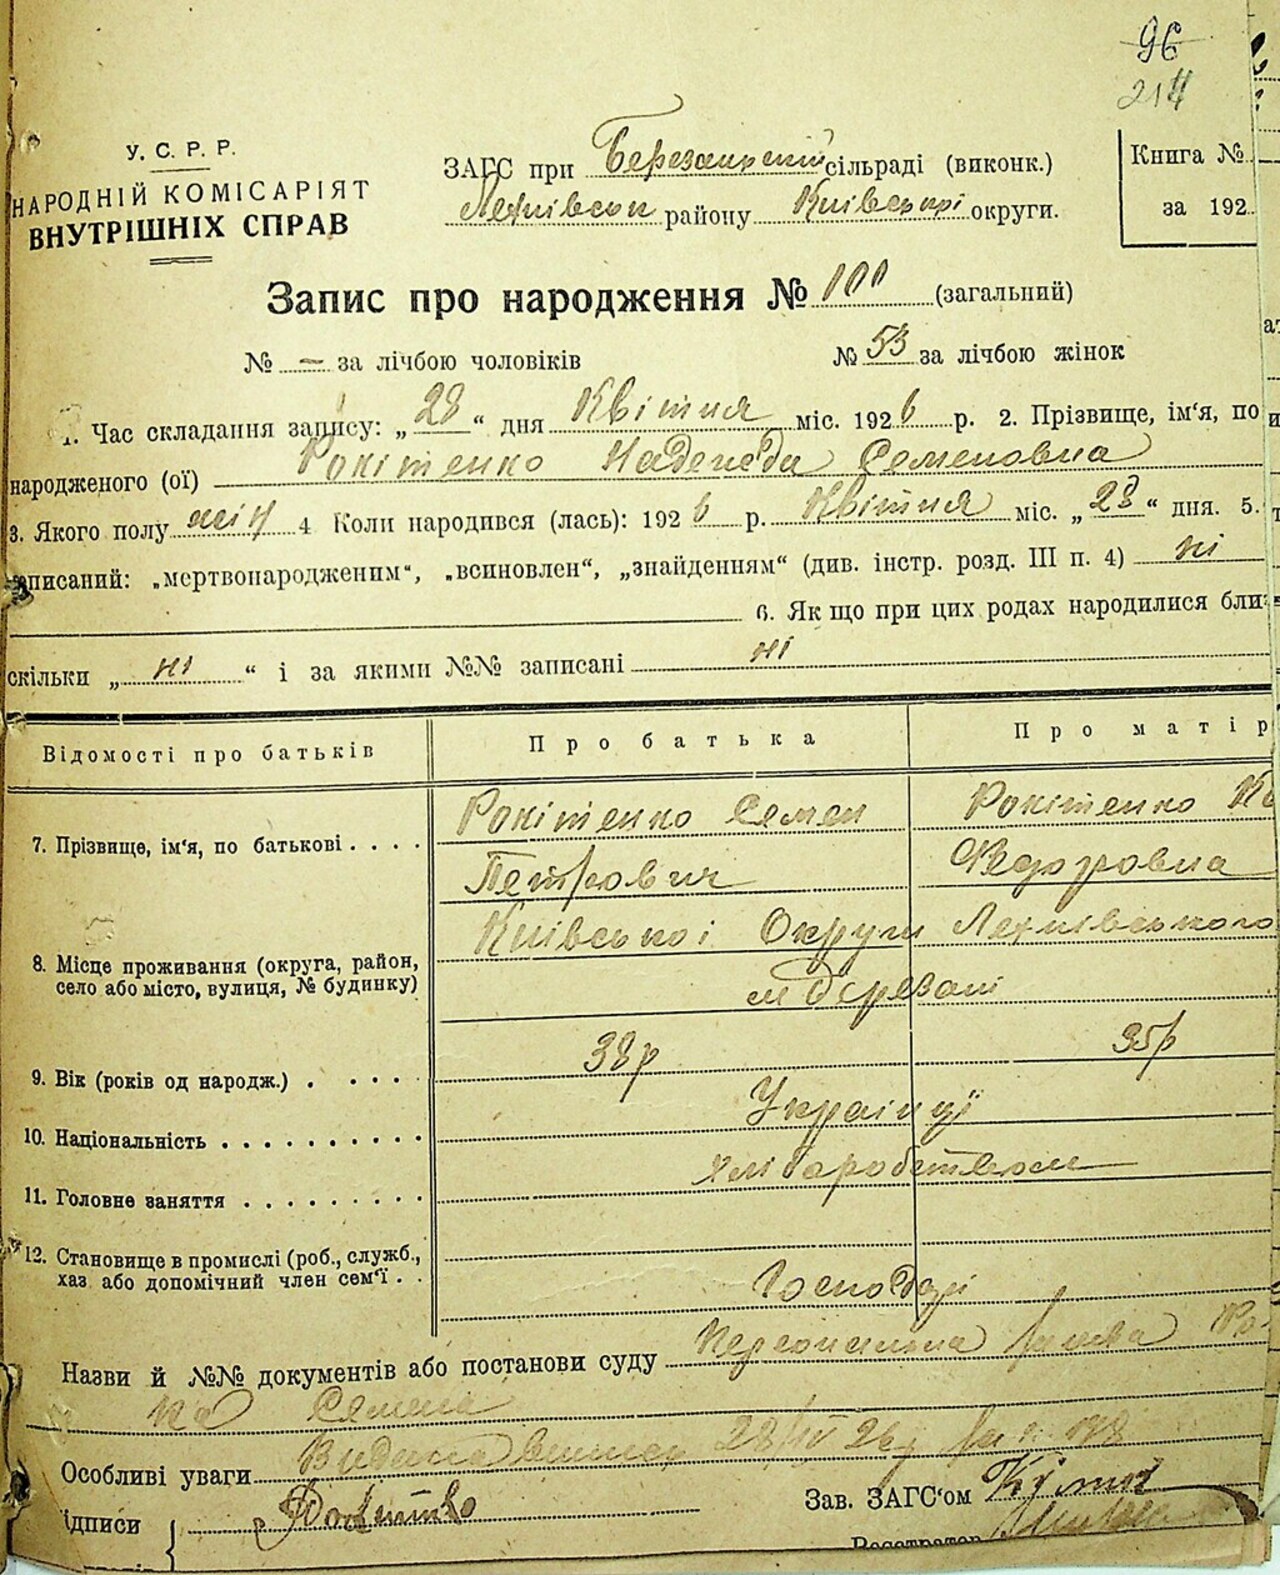 96
214
У. С. Р. Р.
НАРОДНІЙ КОМІСАРІЯТ
ВНУТРІШНІХ СПРАВ
ЗАГС при сільраді (виконк.)
району Київської округи.
Книга №
за 192
Запис про народження № 100 (загальний)
№ — за лічбою чоловіків № 53 за лічбою жінок
1. Час складання запису: „28“ дня Квітня міс. 1926 р. 2. Прізвище, ім'я, по
народженого (ої) Рокітенко Надежда Семеновна
3. Якого полу жін 4 Коли народився (лась): 1926 р. Квітня міс. „28“ дня. 5.
записаний: „мертвонародженим“, „всиновлен“, „знайденням“ (див. інстр. розд. III п. 4) ні
6. Як що при цих родах народилися бли
скільки „ні“ і за якими №№ записані ні
Відомості про батьків Про батька Про матір
7. Прізвище, ім'я, по батькові . . . . Рокітенко Семен Петрович Рокітенко Федоровна
8. Місце проживання (округа, район, село або місто, вулиця, № будинку) Київської Округи м Березані
9. Вік (років од народж.) . . . . 38 р 35 р
10. Національність . . . . . . . . . . Українці
11. Головне заняття . . . . . . . . . хліборобством
12. Становище в промислі (роб., служб., хаз або допомічний член сем'ї . . Господарі
Назви й №№ документів або постанови суду
Семена
Особливі уваги 28/IV 26
ідписи Зав. ЗАГС'ом
Реєстратор